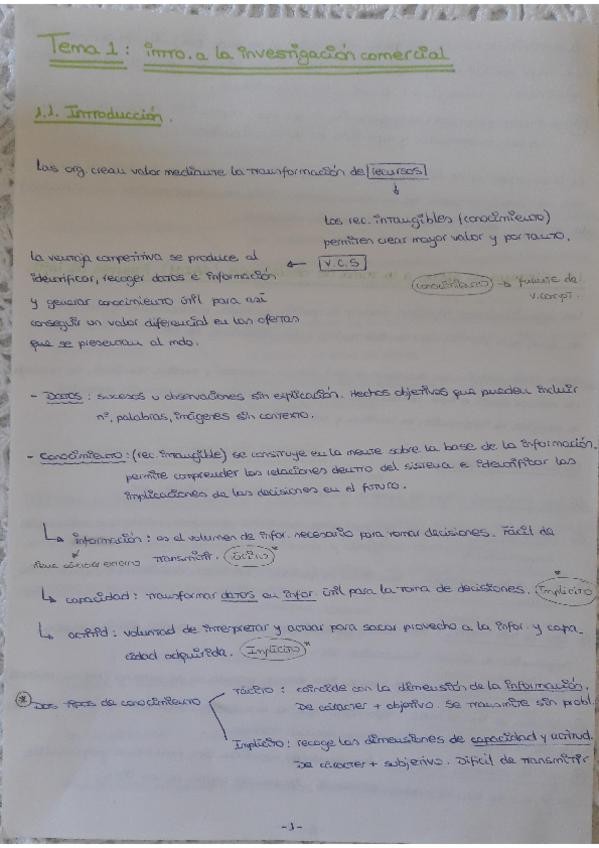 Tema 1: intro. a la investigación comercial
1.1. Introducción.
Las org. crean valor mediante la transformación de recursos
Los rec. intangibles (conocimiento)
permiten crear mayor valor y por tanto,
V.C.S
conocimiento → fuente de
v.compt.
La ventaja competitiva se produce al
identificar, recoger datos e información
y generar conocimiento útil para así
conseguir un valor diferencial en las ofertas
que se presentan al mdo.
- Datos: sucesos u observaciones sin explicación. Hechos objetivos que pueden incluir
nº, palabras, imágenes sin contexto.
- Conocimiento: (rec. intangible) se construye en la mente sobre la base de la información.
permite comprender las relaciones dentro del sistema e identificar las
implicaciones de las decisiones en el futuro.
↳ información: es el volumen de infor. necesario para tomar decisiones. Fácil de
transmitir. Tácito*
* tiene carácter externo
↳ capacidad: transformar datos en infor útil para la toma de decisiones. Implícito*
↳ actitid: voluntad de interpretar y actuar para sacar provecho a la infor. y capa-
cidad adquirida. Implícito*
* Dos tipos de conocimiento
Tácito: coincide con la dimensión de la información.
De carácter + objetivo. Se transmite sin probl.
Implícito: recoge las dimensiones de capacidad y actitud.
De carácter + subjetivo. Difícil de transmitir
-1-